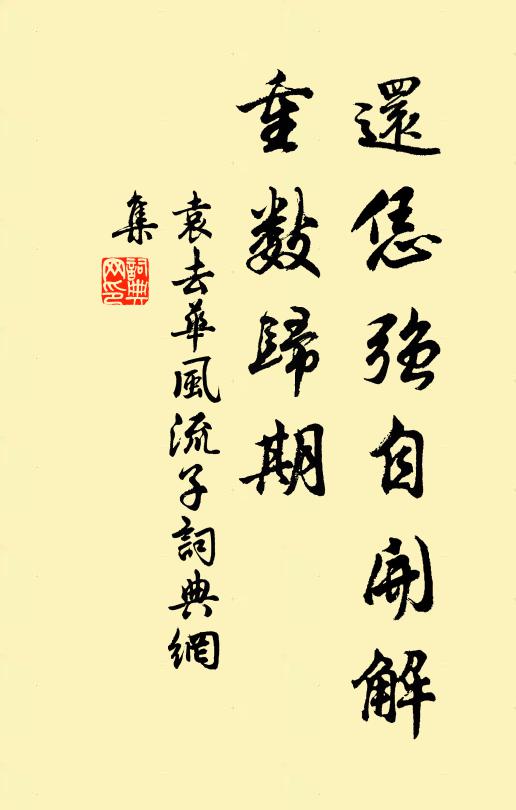 還恁強自開解
重數歸期
袁去華風流子詞典網
集
詞典網印